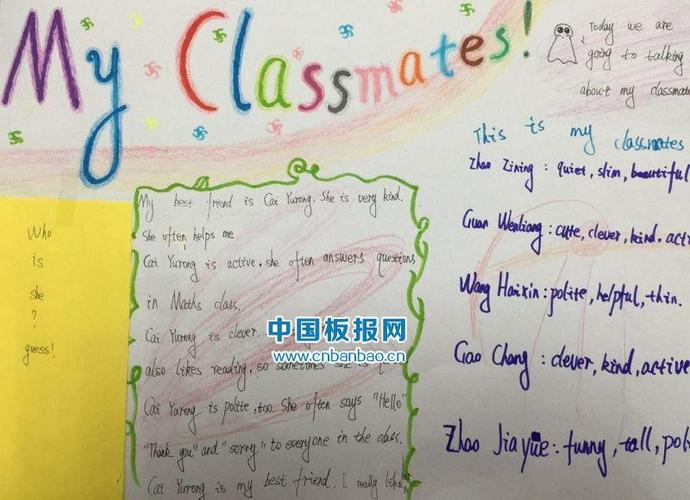 My Classmates!
Today we are
going to talking
about my classmate
This is my classmates
Zhao Zining : quiet, slim, beautiful
Guan Wenliang: cute, clever, kind, acti
Wang Haixin: polite, helpful, thin.
Gao Chang : clever, kind, active
Zhao Jiayue: funny, tall, pol
Who
is
she
?
guess!
My best friend is Cai Yurong. She is very kind.
She often helps me.
Cai Yurong is active, she often answers questions
in Maths class.
Cai Yurong is clever.
also likes reading, so sometimes she is
Cai Yurong is polite, too. She often says "Hello"
"Thank you" and "sorry" to everyone in the class.
Cai Yurong is my best friend. I really like
中国板报网
www.cnbanbao.cn